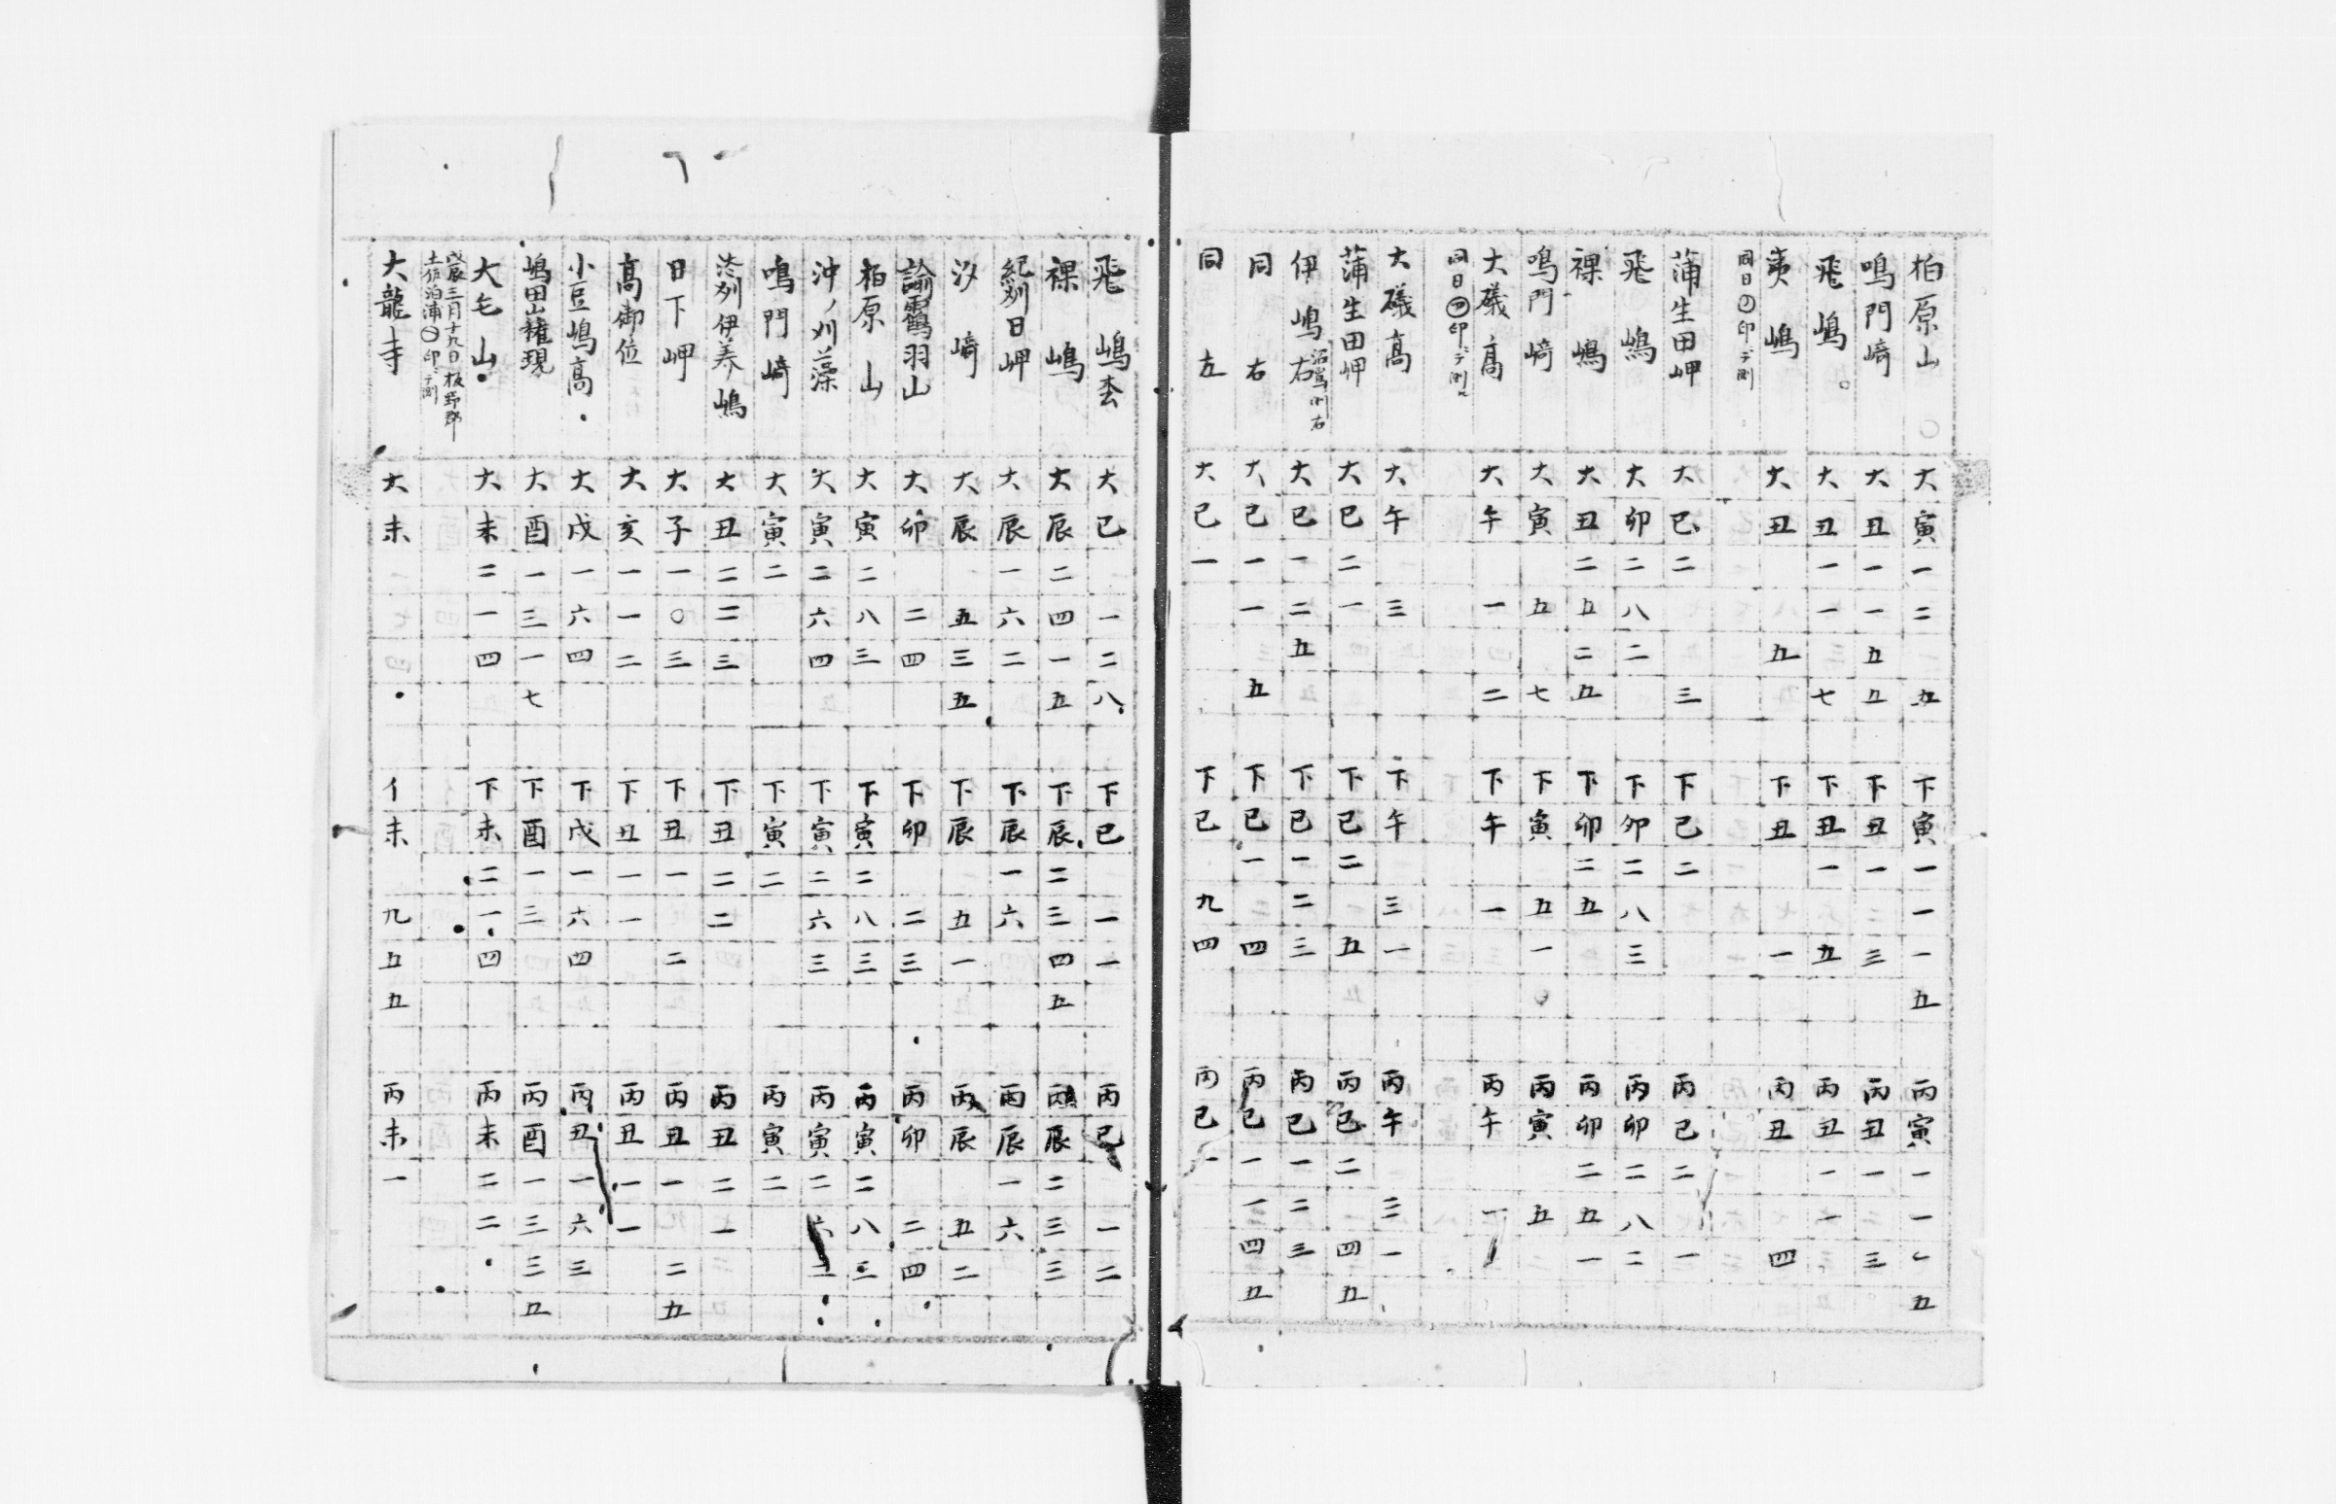 柏原山 大寅一二 五 下寅一一一五 丙寅一一一五
鳴門﨑 大丑一一五五 下丑一 三 丙丑一 三
飛嶋 大丑一一 七 下丑一 五 丙丑一一
夷嶋 大丑 五 下丑 一 丙丑 四
同日 印ニテ測
蒲生田岬 大巳二 三 下巳二 丙巳二 一
飛嶋 大卯二八二 下卯二八三 丙卯二八二
裸嶋 大丑二五二五 下卯二五 丙卯二五一
鳴門﨑 大寅 五 七 下寅 五一 丙寅 五
大礒高 大午 一 二 下午 一 丙午 一
同日 印ニテ測ル
大礒高 大午 三 下午 三一 丙午 三一
蒲生田岬 大巳二一 下巳二 五 丙巳二 四五
伊嶋右 大巳一二五 下巳一二三 丙巳一二三
同右 大巳一一 五 下巳一 四 丙巳一一四五
同左 大巳一 下巳 九四 丙巳一
飛嶋 大巳 一二八 下巳 一一 丙巳 一二
裸嶋 大辰二四一五 下辰二三四五 丙辰二三三
紀刕日岬 大辰一六二 下辰一六 丙辰一六
汐﨑 大辰 五三五 下辰 五一 丙辰 五二
諭靏羽山 大卯 二四 下卯 二三 丙卯 二四
柏原山 大寅二八三 下寅二八三 丙寅二八三
沖ノ刈藻 大寅二六四 下寅二六三 丙寅二六二
鳴門﨑 大寅二 下寅二 丙寅二
淡刕伊美嶋 大丑二二三 下丑二二 丙丑二一
日下岬 大子一〇三 下丑一 二 丙丑一 二五
高御位 大亥一一二 下丑一一 丙丑一一
小豆嶋高 大戌一六四 下戌一六四 丙丑一六三
嶋田山権現 大酉一三一七 下酉一三 丙酉一三三五
大毛山 大未二一四 下未二一四 丙未二二
戊辰三月十九日板野郡
土佐泊浦 印ニテ測
大龍寺 大未 下未 九五五 丙未一